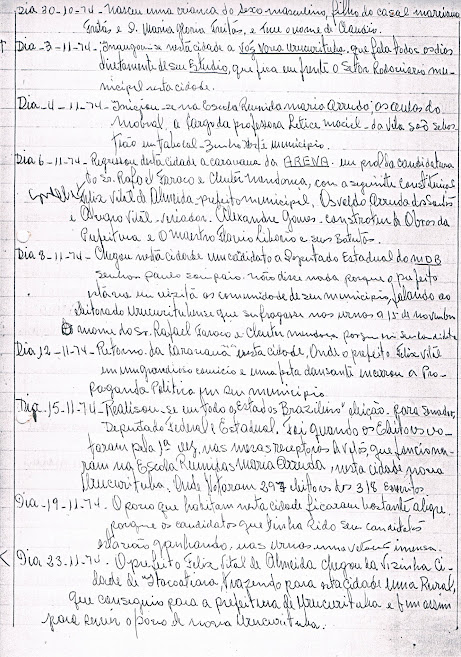 Dia 30-10-74 - Nasceu uma criança do sexo masculino, filho do casal
Freitas, e D. Maria Gloria Freitas, e teve o nome de Claudio.
Dia-3-11-74- Inaugou-se nesta cidade a Voz Nova Urucurituba, que fala todos os dias
diretamente de seu Estudio, que fica em frente o Setor Rodoviario mu-
nicipal nesta cidade.
Dia-4-11-74- Iniciou-se na Escola Reunida maria Arruda, as aulas do
Mobral, a Cargo da professora Letice maciel - da Vila São Sebas
tião em Tabocal - deste municipio.
Dia 6-11-74- Regressou desta cidade a caravana da ARENA em prol da candidatura
do Sr. Rafael Faraco e Cleuter Mendonça, com a seguinte
Felix Vital de Almeida prefeito municipal, Osvaldo Arruda dos Santos
e Vital - Veriador. Alexandre Gomes - da
Prefeitura e O maestro Flavio Liborio e seus Batutas.
Dia 8-11-74- Chegou nesta cidade um candidato a Deputado Estadual do MDB
Senhor Paulo Sampaio. não disse nada porque o prefeito
estava em vizita as comunidade de seu municipio, falando ao
eleitorado Urucuritubense que sufragasse nas urnas a 15 de novembro
O nome do Sr. Rafael Faraco e Cleuter mendonça porque
Dia 12-11-74- Retorno da Caravana nesta cidade, Onde o prefeito Felix Vital
em um grandioso comicio e uma feta dansante a Pro-
paganda Politica em seu municipio.
Dia-15-11-74- Realisou-se em todo os Estados Brazileiro eleição para senador,
Deputado Federal e Estadual. Foi quando os Editores vo-
taram pela 1ª vez, nas mezas receptoras que funciona-
ram na Escola Reunidas Maria Arruda, nesta cidade nova
Urucurituba, Onde Votaram 297 dos 318
Dia-19-11-74- O povo que habitam nesta cidade ficaram bastante alegre,
porque os candidatos que tinha sido seus candidatos
estavão ganhando, nas urnas uma votação imensa.
Dia 23-11-74. O prefeito Felix Vital de Almeida chegou da Vizinha Ci-
dade de Itacoatiara, trazendo para esta cidade uma Rural,
que conseguio para a prefeitura de Urucurituba e fim assim
para servir o povo de nova Urucurituba.